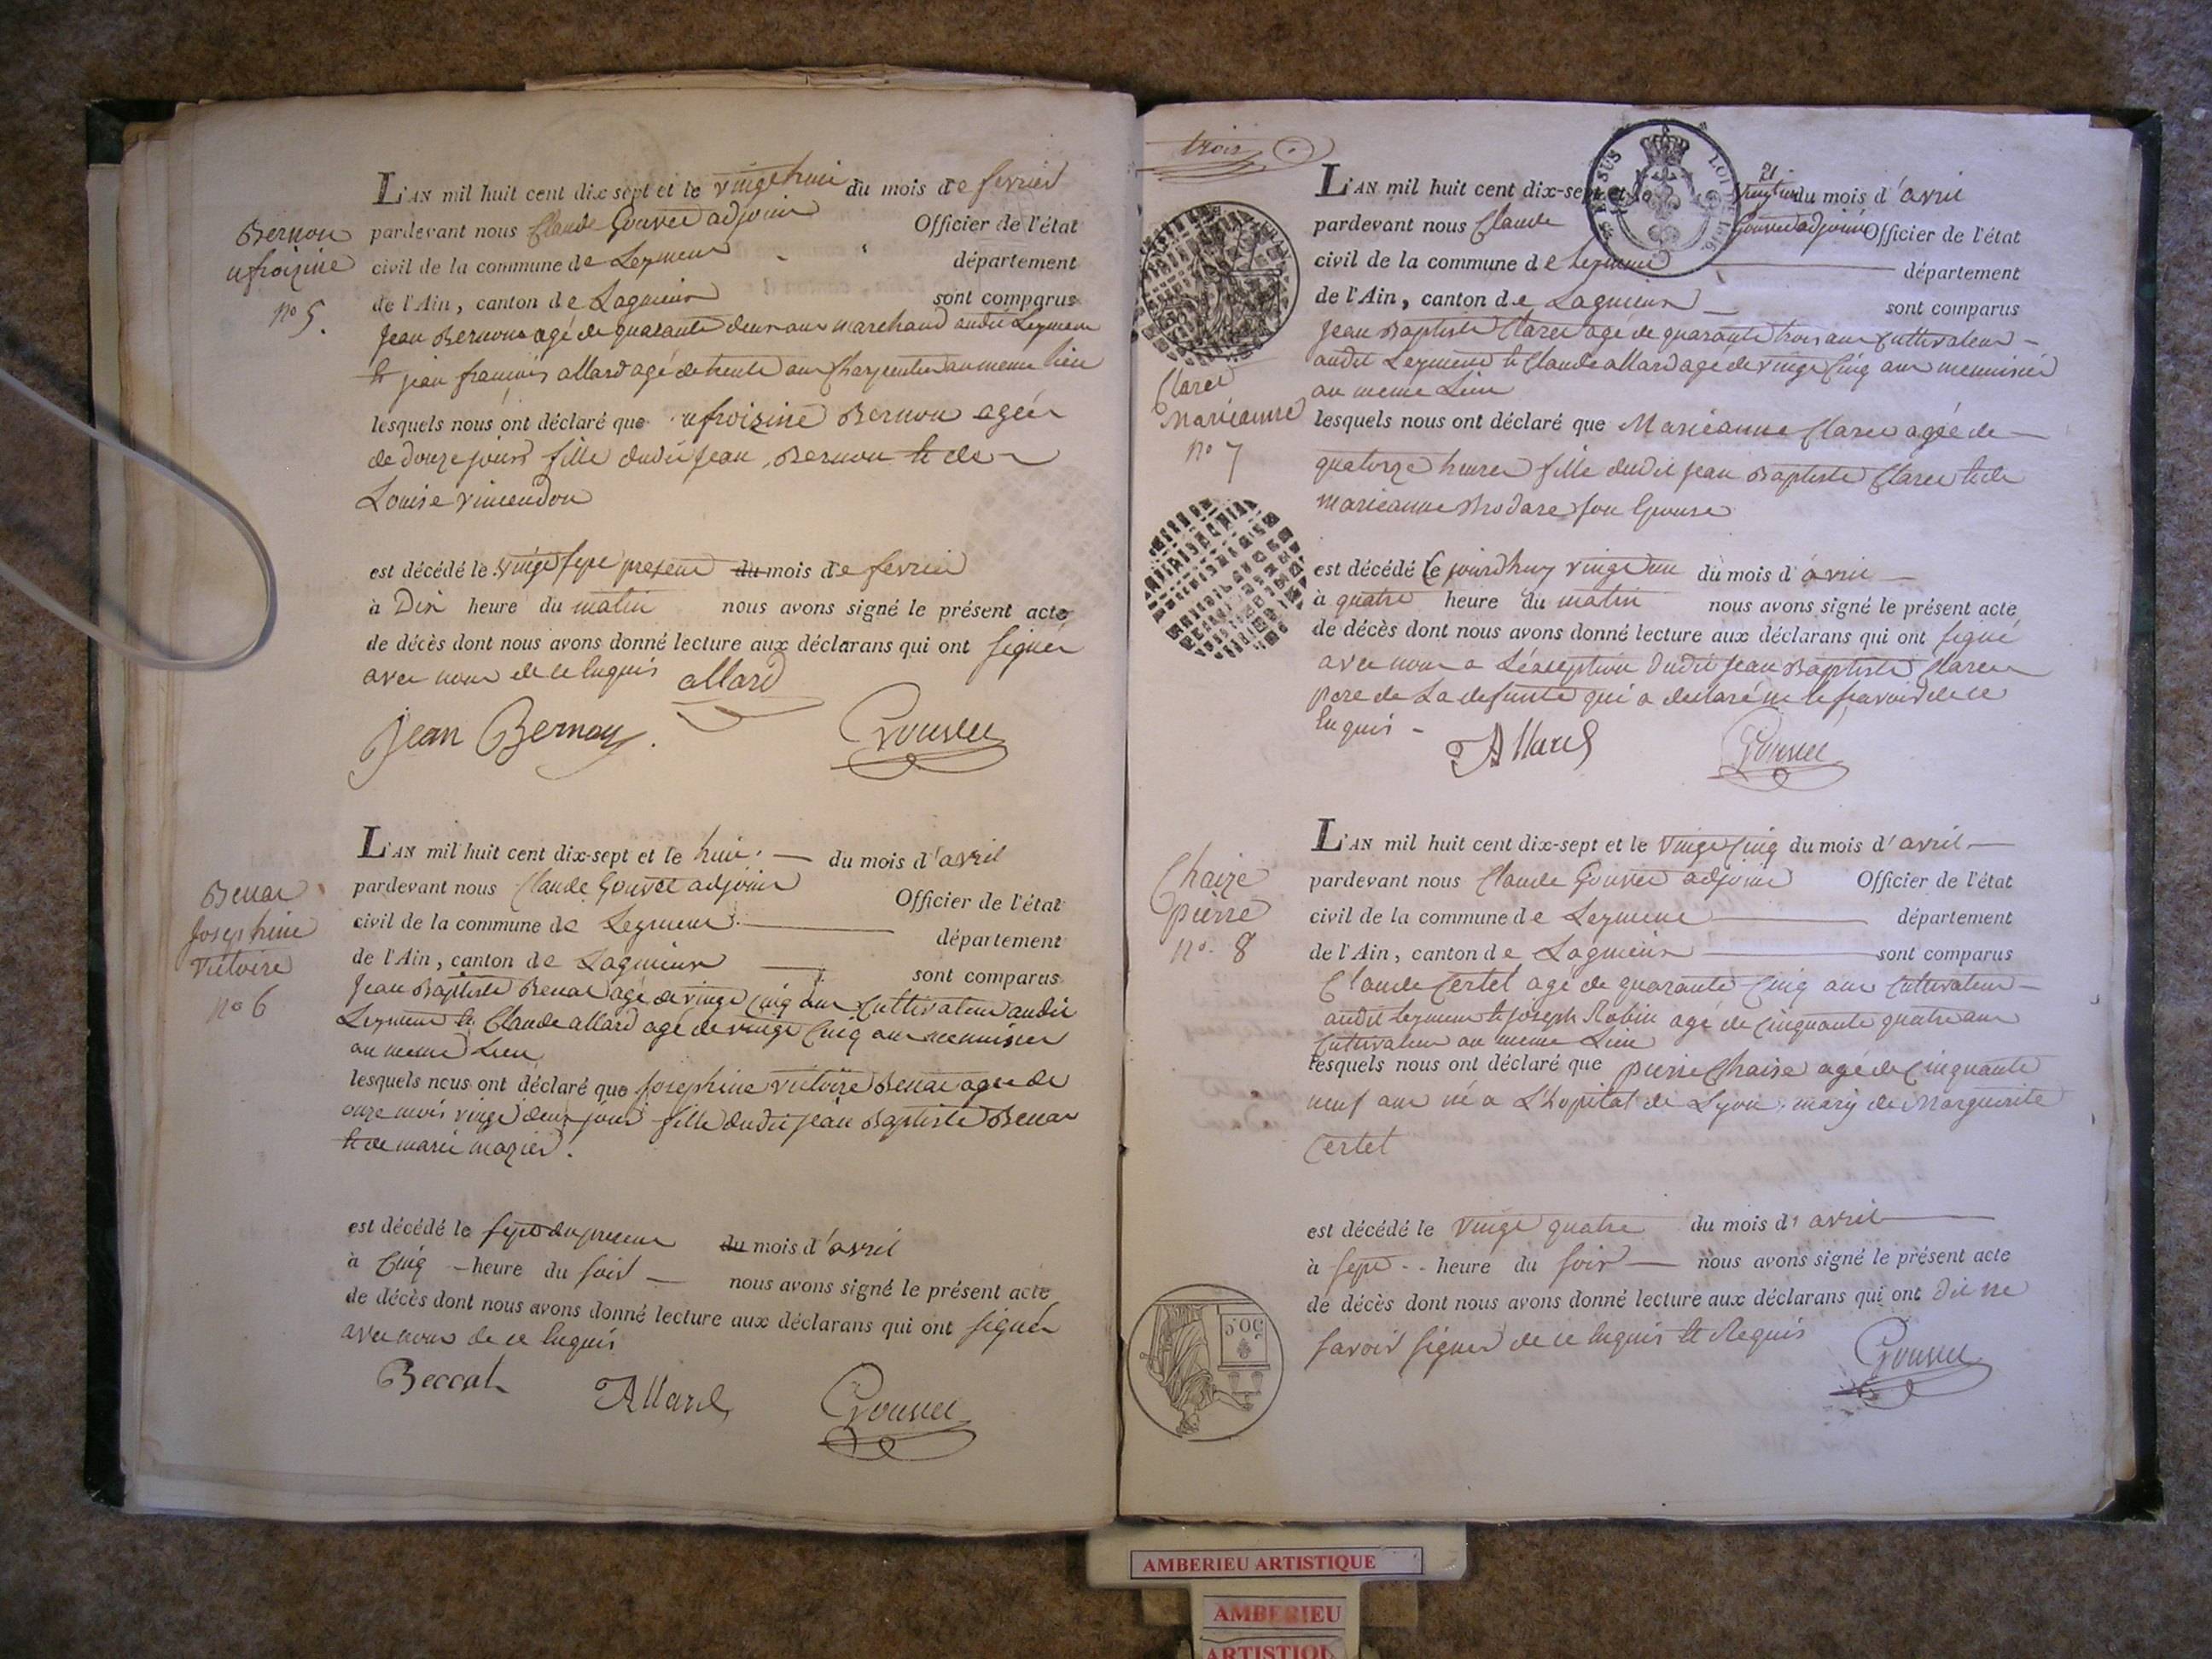 Bernon
ufroisine
no 5.
L'AN mil huit cent dix-sept et le vingt huit du mois de fevrier
pardevant nous Claude Gouvet adjoint Officier de l'état
civil de la commune de Leyment département
de l'Ain, canton de Lagnieux sont comparus
Jean Bernon agé de quarante deux ans marchand audit Leyment
et jean francois allard agé de trente ans Charpentier au meme lieu
lesquels nous ont déclaré que ufroizine Bernon agée
de douze jours fille dudit Jean Bernon et de
Louise vincendon
est décédé le vingt sept present du mois de fevrier
à Dix heure du matin nous avons signé le présent acte
de décès dont nous avons donné lecture aux déclarans qui ont signés
avec nous de ce Enquis allard
Jean Bernon Gouvet
Benat
Josephine
Victoire
no 6
L'AN mil huit cent dix-sept et le huit du mois d'avril
pardevant nous Claude Gouvet adjoint Officier de l'état
civil de la commune de Leyment département
de l'Ain, canton de Lagnieux sont comparus
Jean Baptiste Benat agé de vingt cinq ans Cultivateur audit
Leyment et Claude allard agé de vingt Cinq ans menuisier
au meme Lieu
lesquels nous ont déclaré que Josephine victoire Benat agée de
onze mois vingt deux jours fille dudit jean Baptiste Benat
et de marie mazier.
est décédé le sept du present du mois d'avril
à Cinq heure du soir nous avons signé le présent acte
de décès dont nous avons donné lecture aux déclarans qui ont signés
avec nous de ce Enquis
Beccat Allard Gouvet
trois
TIMBRE SUS LOI DE 1816
Claret
Marieanne
no 7
L'AN mil huit cent dix-sept et le 21 Vingt un du mois d'avril
pardevant nous Claude Gouvet adjoint Officier de l'état
civil de la commune de Leyment département
de l'Ain, canton de Lagnieux sont comparus
Jean Baptiste Claret agé de quarante trois ans Cultivateur
audit Leyment et Claude allard agé de vingt Cinq ans menuisier
au meme Lieu
lesquels nous ont déclaré que Marieanne Claret agée de
quatorze heures fille dudit jean Baptiste Claret et de
marieanne Brodare son Epouse
est décédé Ce jourdhuy vingt un du mois d'avril
à quatre heure du matin nous avons signé le présent acte
de décès dont nous avons donné lecture aux déclarans qui ont signé
avec nous a Léxception dudit Jean Baptiste Claret
pere de La defunte qui a declaré ne le savoir de ce
Enquis
Allard Gouvet
Chaize
pierre
no. 8
L'AN mil huit cent dix-sept et le vingt Cinq du mois d'avril
pardevant nous Claude Gouvet adjoint Officier de l'état
civil de la commune de Leyment département
de l'Ain, canton de Lagnieux sont comparus
Claude Certet agé de quarante Cinq ans Cultivateur
audit Leyment et Joseph Robin agé de Cinquante quatre ans
Cultivateur au meme Lieu
lesquels nous ont déclaré que pierre Chaise agé de Cinquante
neuf ans né a L'hopital de Lyon, mary de Marguerite
Certet
est décédé le vingt quatre du mois d'avril
à sept heure du soir nous avons signé le présent acte
de décès dont nous avons donné lecture aux déclarans qui ont dit ne
savoir signer de ce Enquis et Requis
Gouvet
50C
AMBERIEU ARTISTIQUE
AMBERIEU
ARTISTIQU